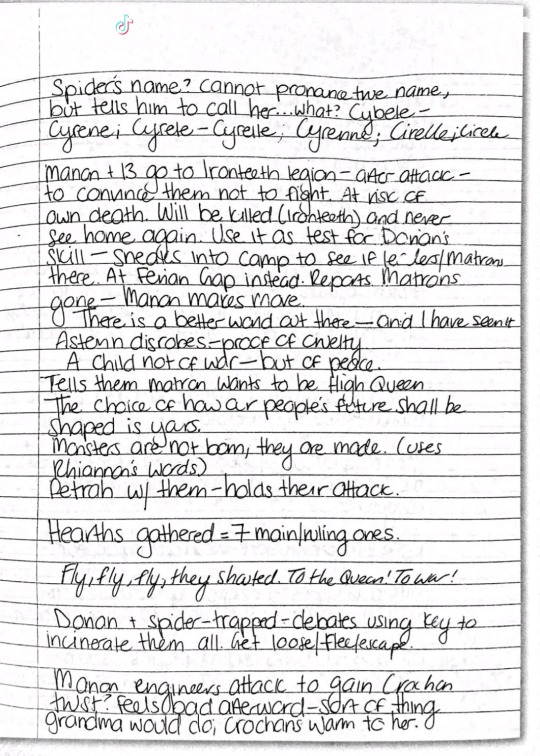 Spider's name? Cannot pronance true name,
but tells him to call her...what? Cybele-
Cyrene; Cyrele-Cyrelle; Cyrenne; Cirelle; Circle
Manon + 13 go to Ironteeth legion-after attack-
to convince them not to fight. At risk of
own death. Will be killed (Ironteeth) and never
see home again. Use it as test for Dorian's
skill - sneaks into camp to see if Matrons
there. At Ferian Gap instead. Reports Matrons
gone - Manon makes move.
There is a better world out there - and I have seen it
Asterin disrobes-proof of cruelty.
A child not of war-but of peace.
Tells them matron wants to be High Queen
The choice of how our people's future shall be
shaped is yours.
Monsters are not born, they are made. (uses
Rhiannon's words)
Petrah w/ them-holds their attack.
Hearths gathered = 7 main/ruling ones.
Fly, fly, fly, they shouted. To the Queen! To war!
Dorian + spider-trapped-debates using key to
incinerate them all. Get loose/flee/escape.
Manon engineers attack to gain Crochan
twist? Feels bad afterward-sort of thing
grandma would do; Crochans warm to her.